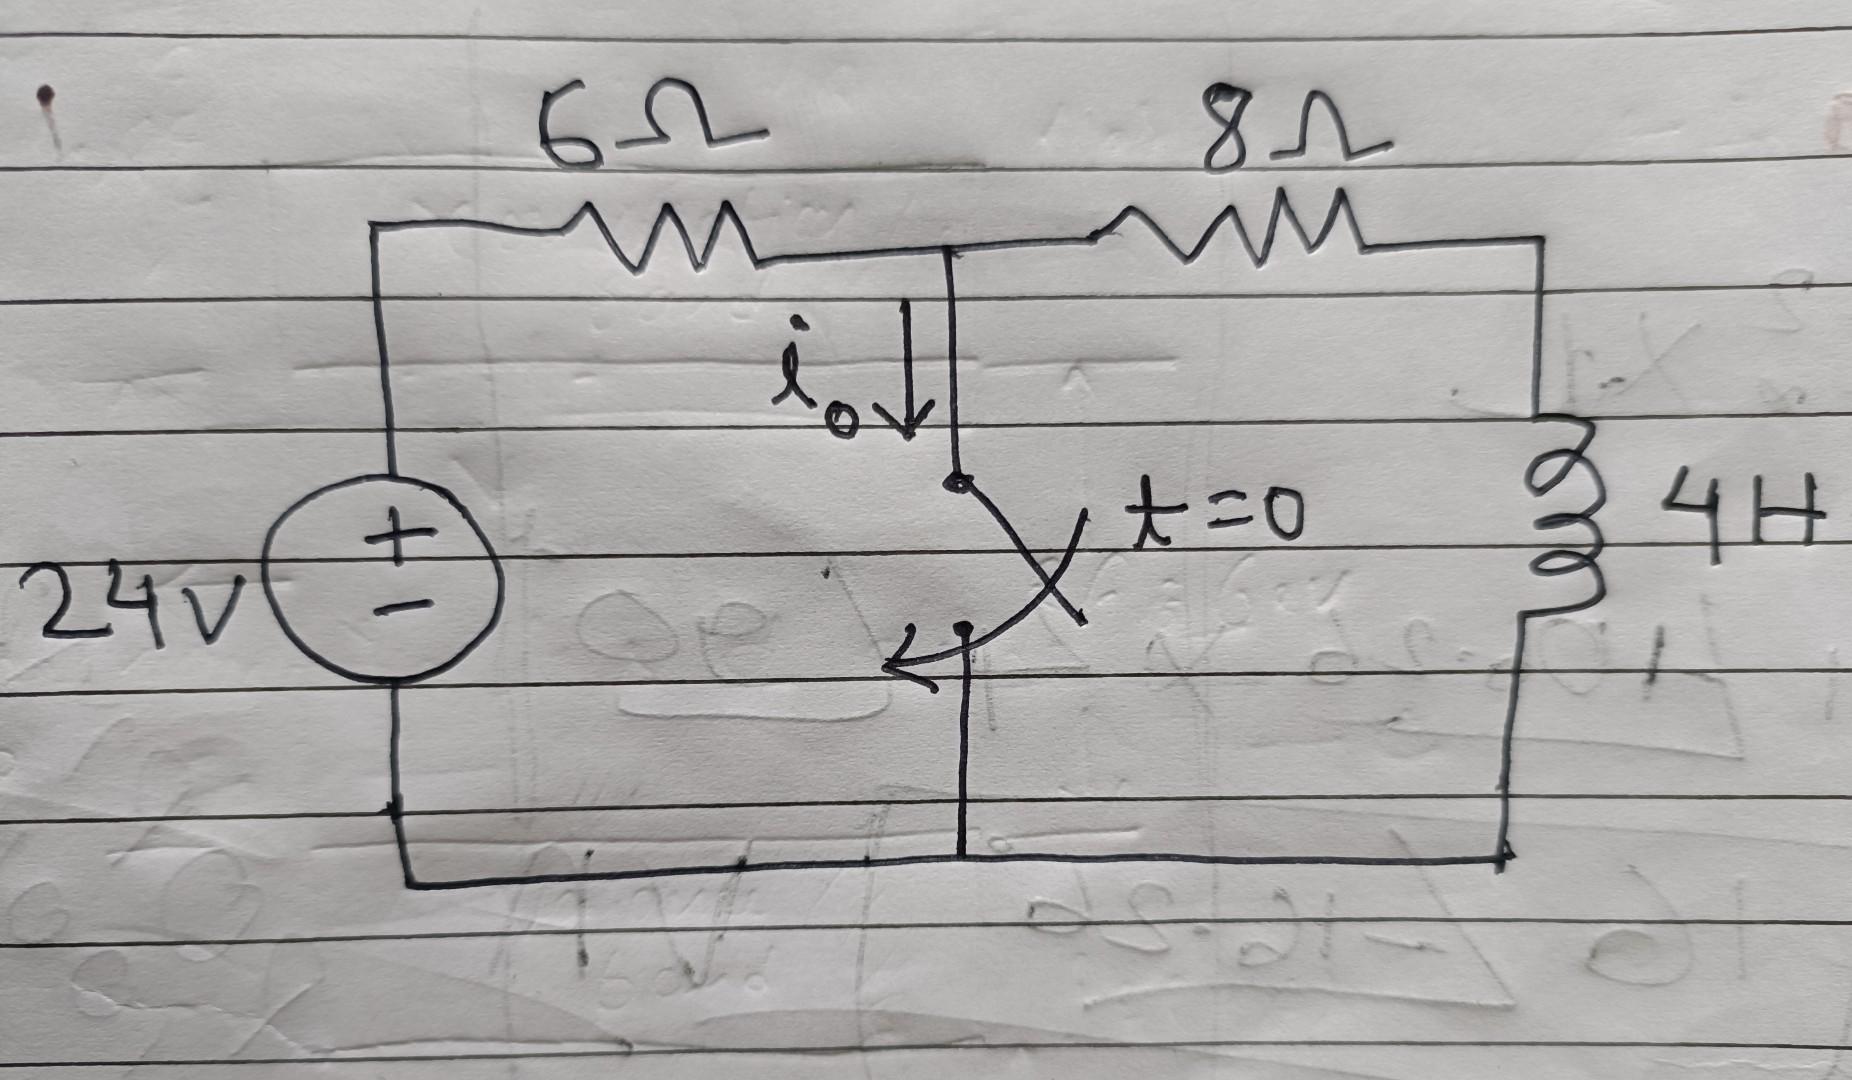 6Ω
8Ω
i₀
t=0
4H
24V
+
−